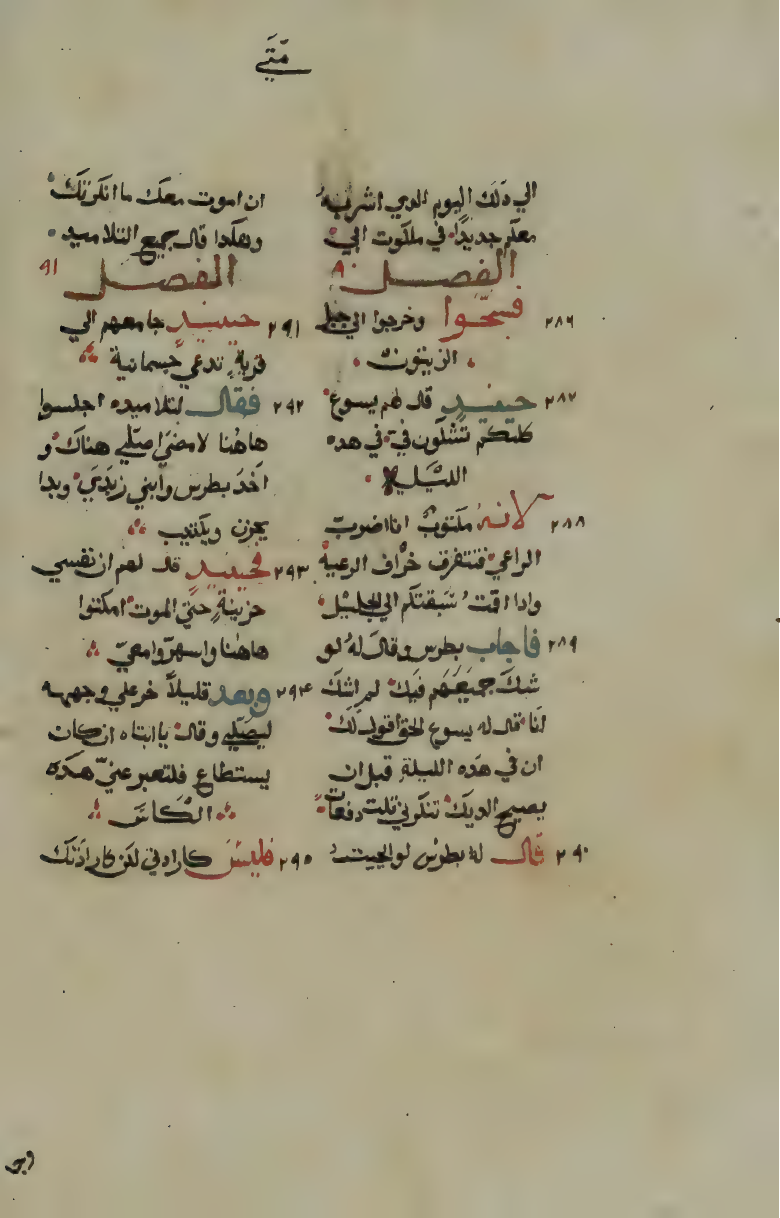 متي
الي دلك اليوم الدي اشربه
معكم جديدًا في ملكوت ابي
الفصل ٩٠
٢٨٦ فسبحوا وخرجوا الي جبل
الزيتون
٢٨٧ حينيد قال لهم يسوع
كلكم تشكون في في هده
الليله
٢٨٨ لانه مكتوبٌ انا اضرب
الراعي فتتفرف خراف الرعية
وادا اقمت سبقتكم الي الجليل
٢٨٩ فاجاب بطرس وقال له لو
شك جميعهم فيك لم اشك
انا قال له يسوع الحق اقول لك
ان في هده الليلة قبل ان
يصيح الديك تنكرني تلت دفعات
٢٩٠ قال له بطرس لو الجيت
ان اموت معك ما انكرتك
وهكدا قال جميع التلاميد
الفصل ٩١
٢٩١ حينيد جا معهم الي
قرية تدعي جسمانية
٢٩٢ فقال لتلاميده اجلسوا
هاهنا لامضي اصلي هناك و
اخد بطرس وابني زبدي وبدا
يحزن ويكتيب
٢٩٣ فحينيد قال لهم ان نفسي
حزينة حتي الموت امكتوا
هاهنا واسهروا معي
٢٩٤ وبعد قليلاً خر علي وجهه
ليصلي وقال يا ابتاه ان كان
يستطاع فلتعبر عني هده
الكاس
٢٩٥ فليس كارادتي لكن كارادتك